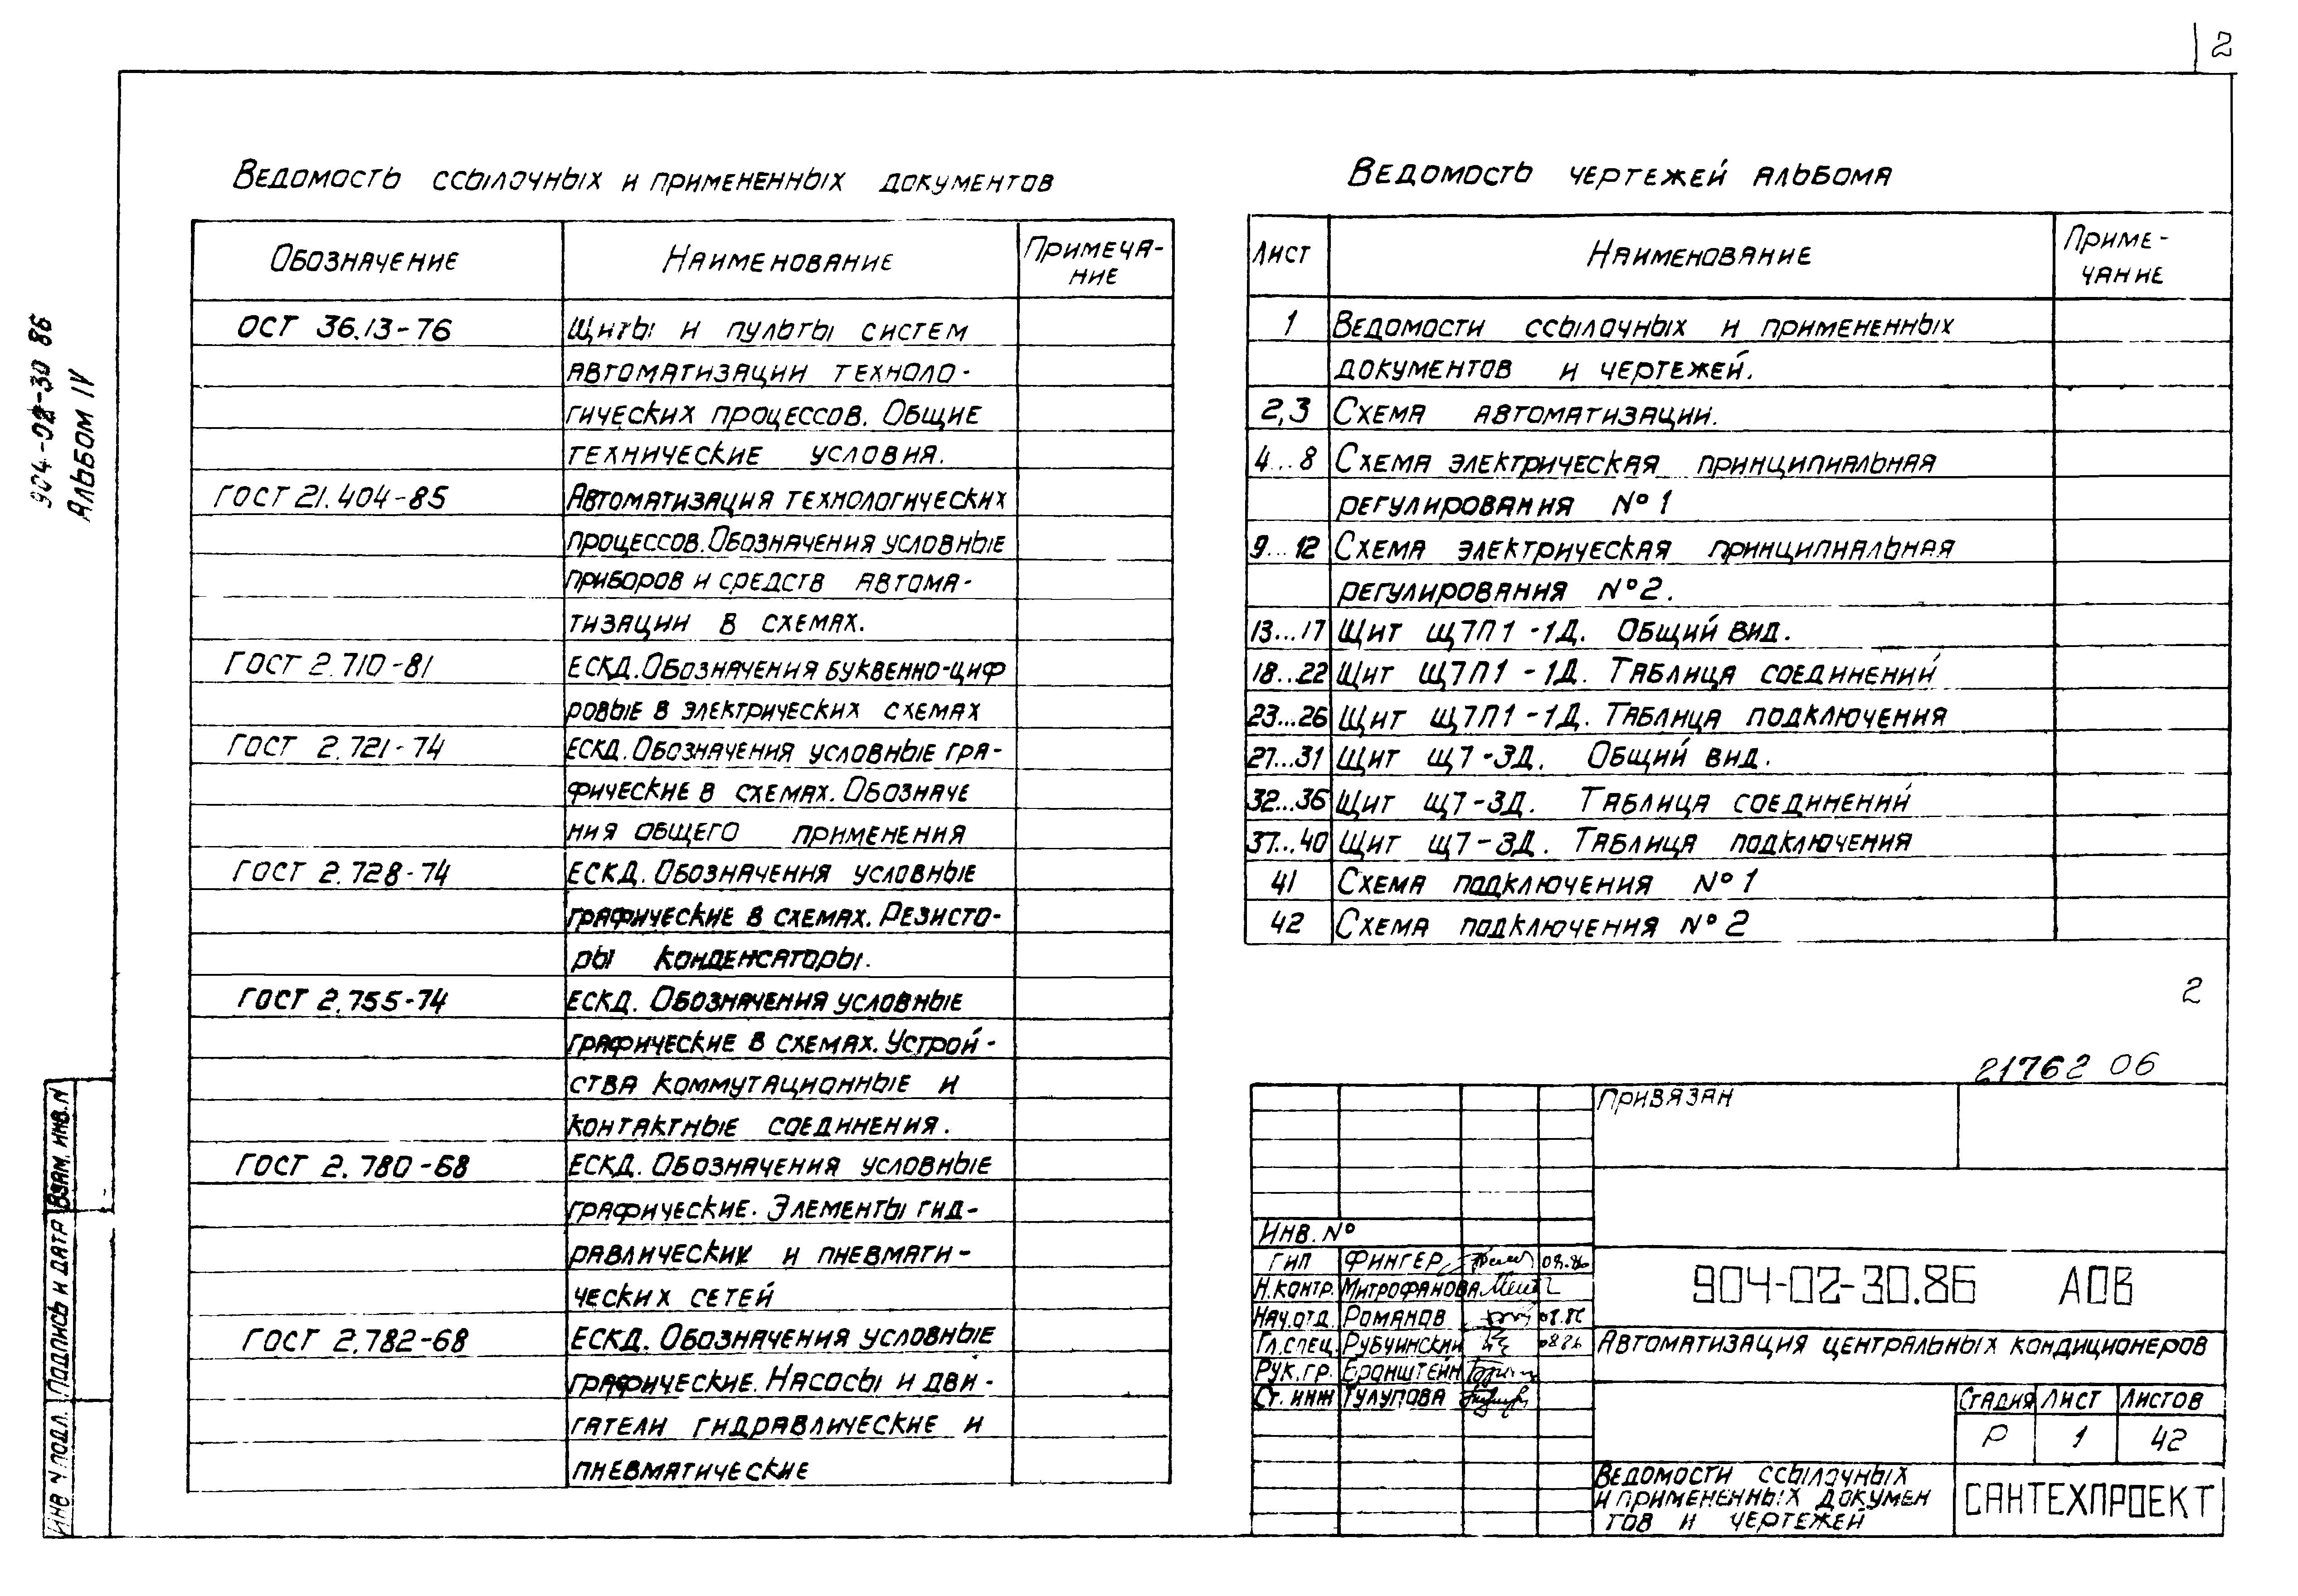 2
904-02-30 86
АЛЬБОМ IV
ВЕДОМОСТЬ ССЫЛОЧНЫХ И ПРИМЕНЕННЫХ ДОКУМЕНТОВ
ОБОЗНАЧЕНИЕ НАИМЕНОВАНИЕ ПРИМЕЧА-
НИЕ
ОСТ 36.13-76 ЩИТЫ И ПУЛЬТЫ СИСТЕМ
АВТОМАТИЗАЦИИ ТЕХНОЛО-
ГИЧЕСКИХ ПРОЦЕССОВ. ОБЩИЕ
ТЕХНИЧЕСКИЕ УСЛОВИЯ.
ГОСТ 21.404-85 АВТОМАТИЗАЦИЯ ТЕХНОЛОГИЧЕСКИХ
ПРОЦЕССОВ. ОБОЗНАЧЕНИЯ УСЛОВНЫЕ
ПРИБОРОВ И СРЕДСТВ АВТОМА-
ТИЗАЦИИ В СХЕМАХ.
ГОСТ 2.710-81 ЕСКД. ОБОЗНАЧЕНИЯ БУКВЕННО-ЦИФ
РОВЫЕ В ЭЛЕКТРИЧЕСКИХ СХЕМАХ
ГОСТ 2.721-74 ЕСКД. ОБОЗНАЧЕНИЯ УСЛОВНЫЕ ГРА-
ФИЧЕСКИЕ В СХЕМАХ. ОБОЗНАЧЕ
НИЯ ОБЩЕГО ПРИМЕНЕНИЯ
ГОСТ 2.728-74 ЕСКД. ОБОЗНАЧЕНИЯ УСЛОВНЫЕ
ГРАФИЧЕСКИЕ В СХЕМАХ. РЕЗИСТО-
РЫ КОНДЕНСАТОРЫ.
ГОСТ 2.755-74 ЕСКД. ОБОЗНАЧЕНИЯ УСЛОВНЫЕ
ГРАФИЧЕСКИЕ В СХЕМАХ. УСТРОЙ-
СТВА КОММУТАЦИОННЫЕ И
КОНТАКТНЫЕ СОЕДИНЕНИЯ.
ГОСТ 2.780-68 ЕСКД. ОБОЗНАЧЕНИЯ УСЛОВНЫЕ
ГРАФИЧЕСКИЕ. ЭЛЕМЕНТЫ ГИД-
РАВЛИЧЕСКИХ И ПНЕВМАТИ-
ЧЕСКИХ СЕТЕЙ
ГОСТ 2.782-68 ЕСКД. ОБОЗНАЧЕНИЯ УСЛОВНЫЕ
ГРАФИЧЕСКИЕ. НАСОСЫ И ДВИ-
ГАТЕЛИ ГИДРАВЛИЧЕСКИЕ И
ПНЕВМАТИЧЕСКИЕ
ВЕДОМОСТЬ ЧЕРТЕЖЕЙ АЛЬБОМА
ЛИСТ НАИМЕНОВАНИЕ ПРИМЕ-
ЧАНИЕ
1 ВЕДОМОСТИ ССЫЛОЧНЫХ И ПРИМЕНЕННЫХ
ДОКУМЕНТОВ И ЧЕРТЕЖЕЙ.
2,3 СХЕМА АВТОМАТИЗАЦИИ.
4...8 СХЕМА ЭЛЕКТРИЧЕСКАЯ ПРИНЦИПИАЛЬНАЯ
РЕГУЛИРОВАНИЯ №1
9...12 СХЕМА ЭЛЕКТРИЧЕСКАЯ ПРИНЦИПИАЛЬНАЯ
РЕГУЛИРОВАНИЯ №2.
13...17 ЩИТ Щ7П1-1Д. ОБЩИЙ ВИД.
18...22 ЩИТ Щ7П1-1Д. ТАБЛИЦА СОЕДИНЕНИЙ
23...26 ЩИТ Щ7П1-1Д. ТАБЛИЦА ПОДКЛЮЧЕНИЯ
27...31 ЩИТ Щ7-3Д. ОБЩИЙ ВИД.
32...36 ЩИТ Щ7-3Д. ТАБЛИЦА СОЕДИНЕНИЙ
37...40 ЩИТ Щ7-3Д. ТАБЛИЦА ПОДКЛЮЧЕНИЯ
41 СХЕМА ПОДКЛЮЧЕНИЯ №1
42 СХЕМА ПОДКЛЮЧЕНИЯ №2
2
21762 06
ПРИВЯЗАН
ИНВ. №
ГИП ФИНГЕР 09.86
Н.КОНТР. МИТРОФАНОВА
НАЧ.ОТД. РОМАНОВ 08.86
ГЛ.СПЕЦ. РУБЧИНСКИЙ 08 86
РУК.ГР. БРОНШТЕЙН
СТ. ИНЖ ТУЛУПОВА
904-02-30.86 АОВ
АВТОМАТИЗАЦИЯ ЦЕНТРАЛЬНЫХ КОНДИЦИОНЕРОВ
СТАДИЯ ЛИСТ ЛИСТОВ
Р 1 42
ВЕДОМОСТИ ССЫЛОЧНЫХ
И ПРИМЕНЕННЫХ ДОКУМЕН
ТОВ И ЧЕРТЕЖЕЙ
САНТЕХПРОЕКТ
ИНВ N ПОДЛ. ПОДПИСЬ И ДАТА ВЗАМ. ИНВ. N